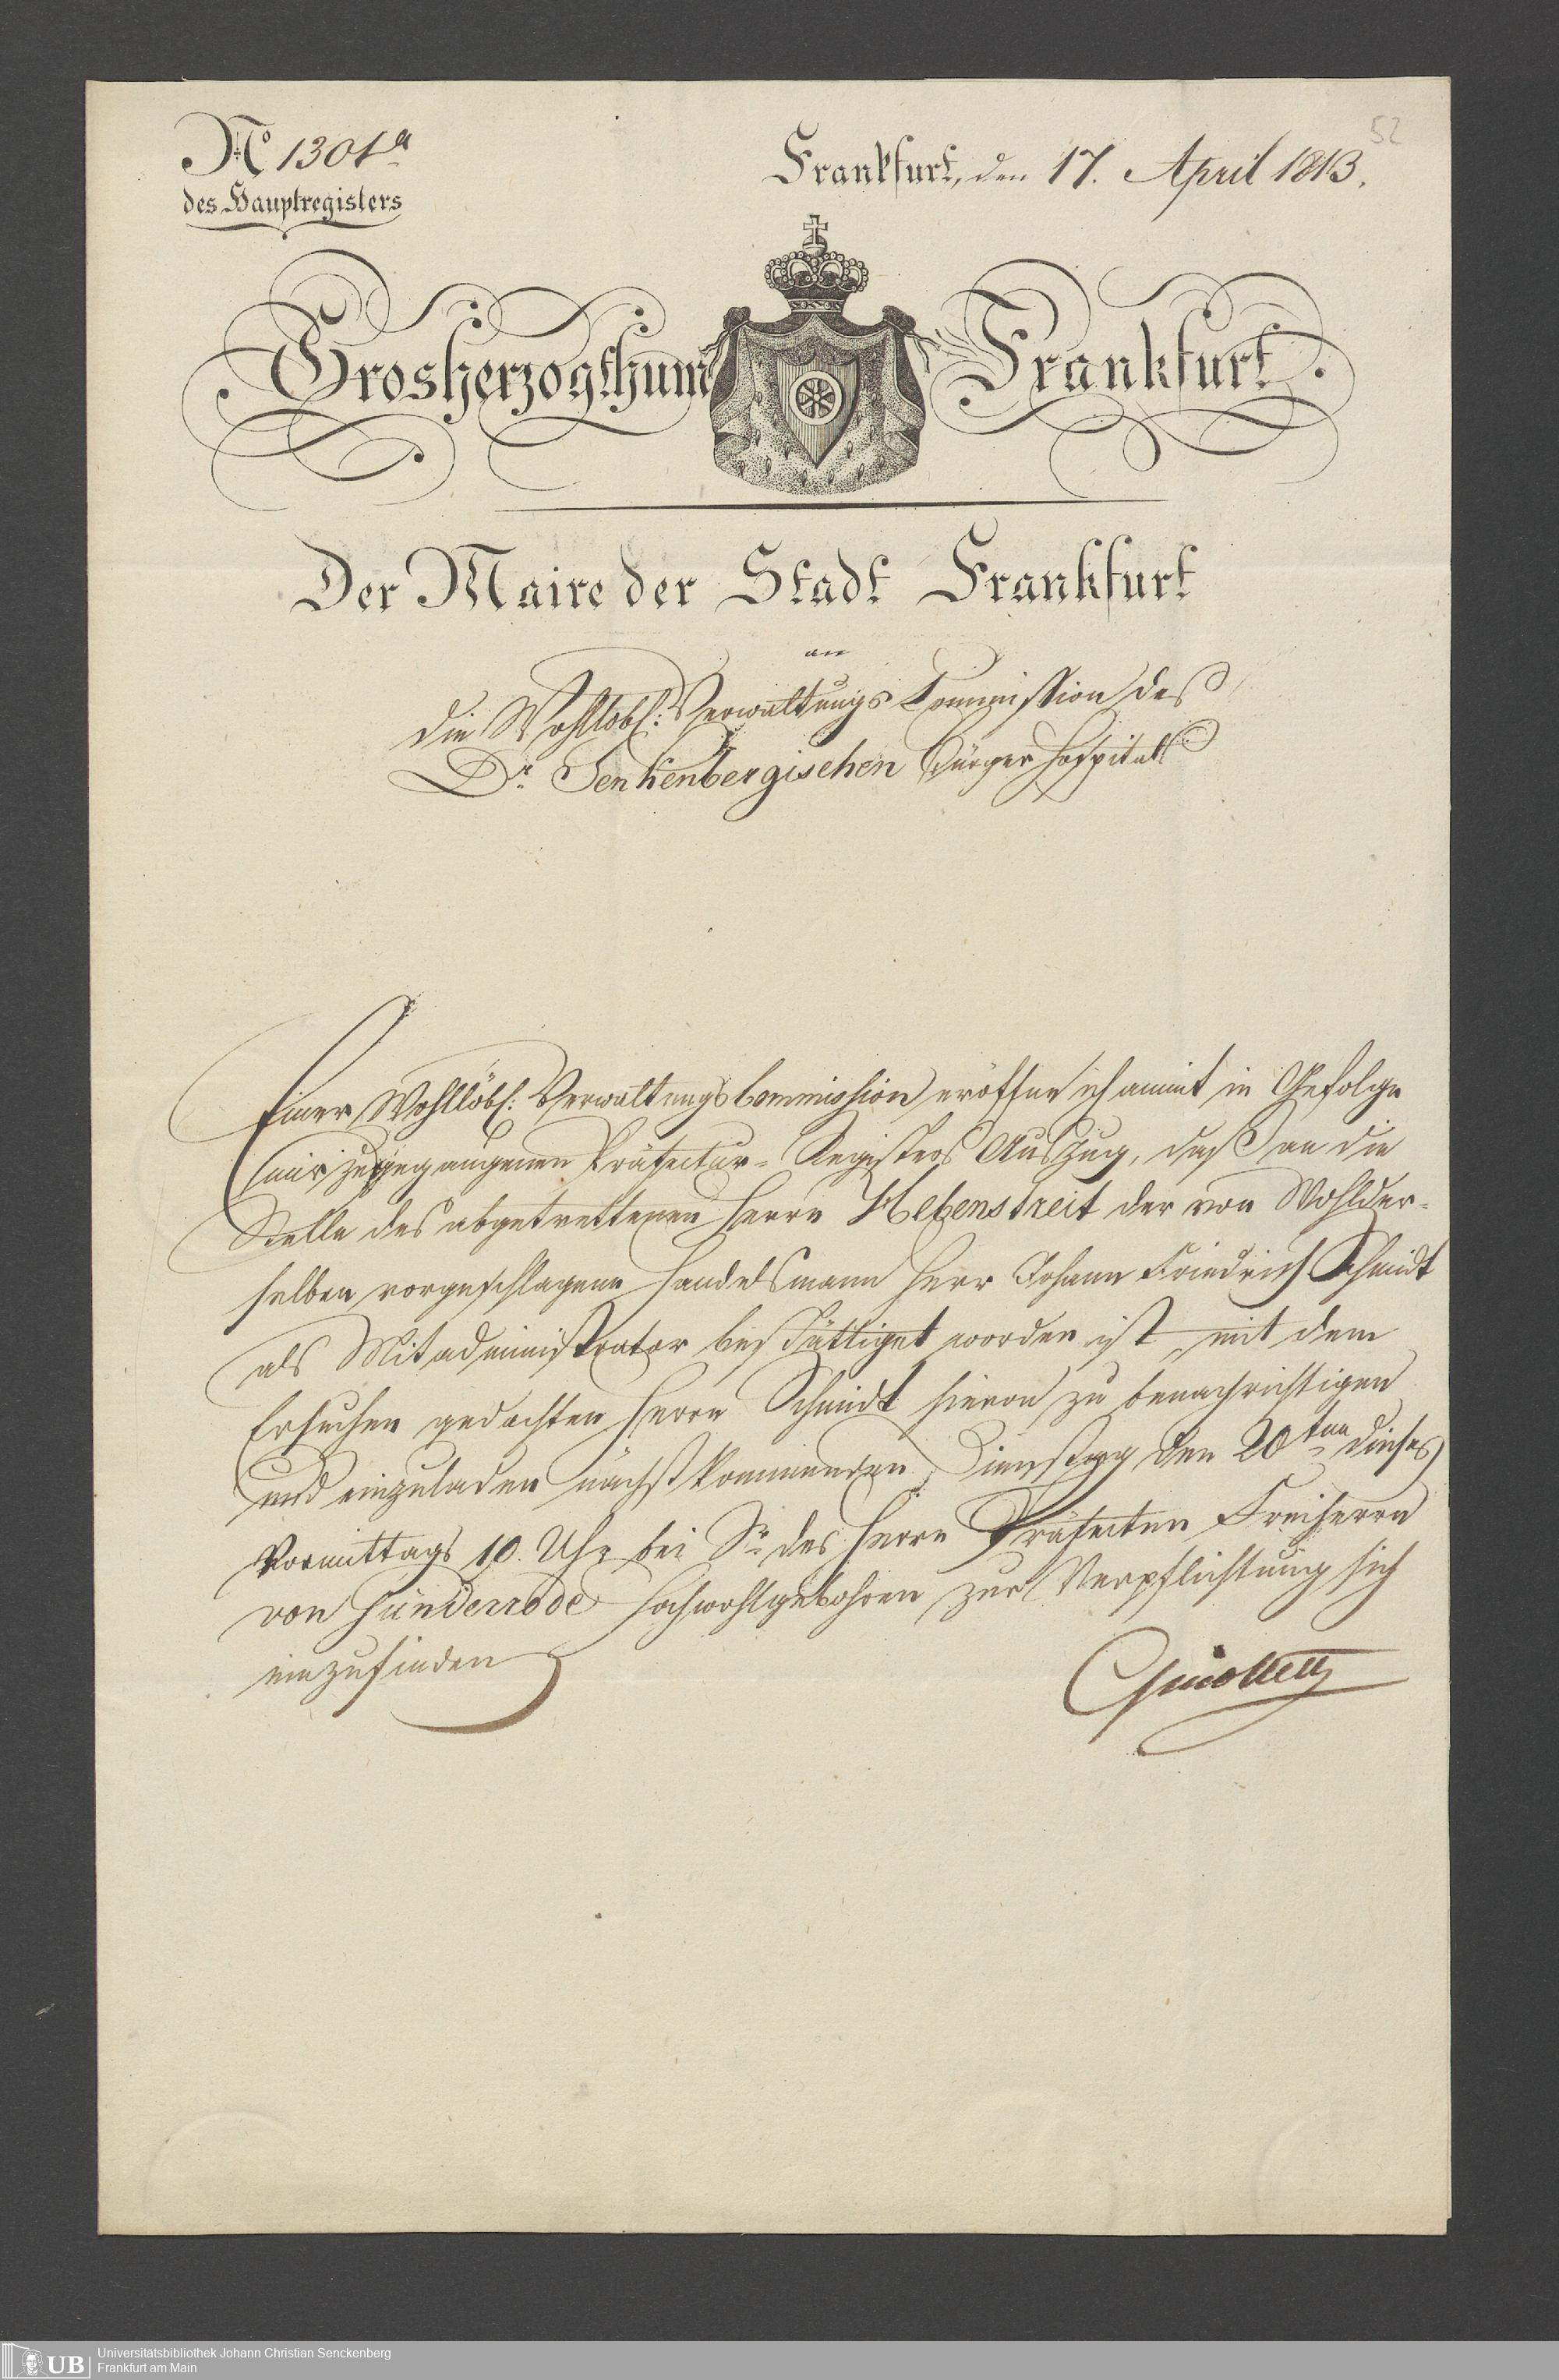 52
No 1301a
des Hauptregisters
Frankfurt, den 17. April 1813.
Grosherzogthum Frankfurt.
Der Maire der Stadt Frankfurt
an
die Wohllöbl: Verwaltungs Commission des
Dr. Senkenbergischen Bürger Hospitals
Einer Wohllöbl: Verwaltungs Commission eröffne ich anmit in Gefolge
mir zugegangenen Präfectur-Registers Auszug, daß an die
Stelle des abgetrettenen Herrn Hebenstreit der von Wohlder-
selben vorgeschlagene Handelsmann Herr Johann Friedrich Schmidt
als Mitadministrator bestättiget worden ist, mit dem
Ersuchen gedachten Herrn Schmidt hievon zu benachrichtigen
und einzuladen nächstkommenden Dienstag den 20ten dieses
Vormittags 10. Uhr bei Sr. des Herrn Präfecten Freiherrn
von Günderrode Hochwohlgebohren zur Verpflichtung sich
einzufinden
Guiollett
UB
Universitätsbibliothek Johann Christian Senckenberg
Frankfurt am Main